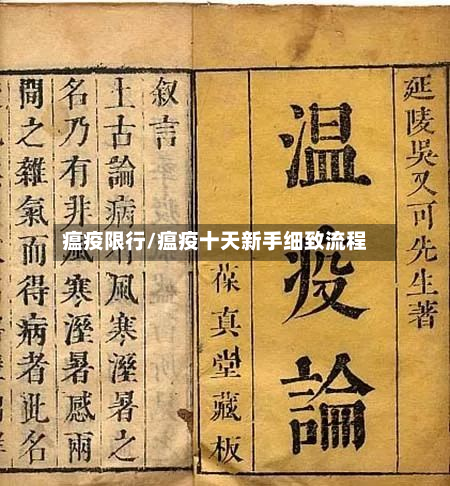 延陵吳又可先生著
温疫論
葆真堂藏板
叙言
上古論病風寒溼暑之
名乃有非風寒溼暑感兩
間之雜氣而得病者此名
瘟疫限行/瘟疫十天新手细致流程